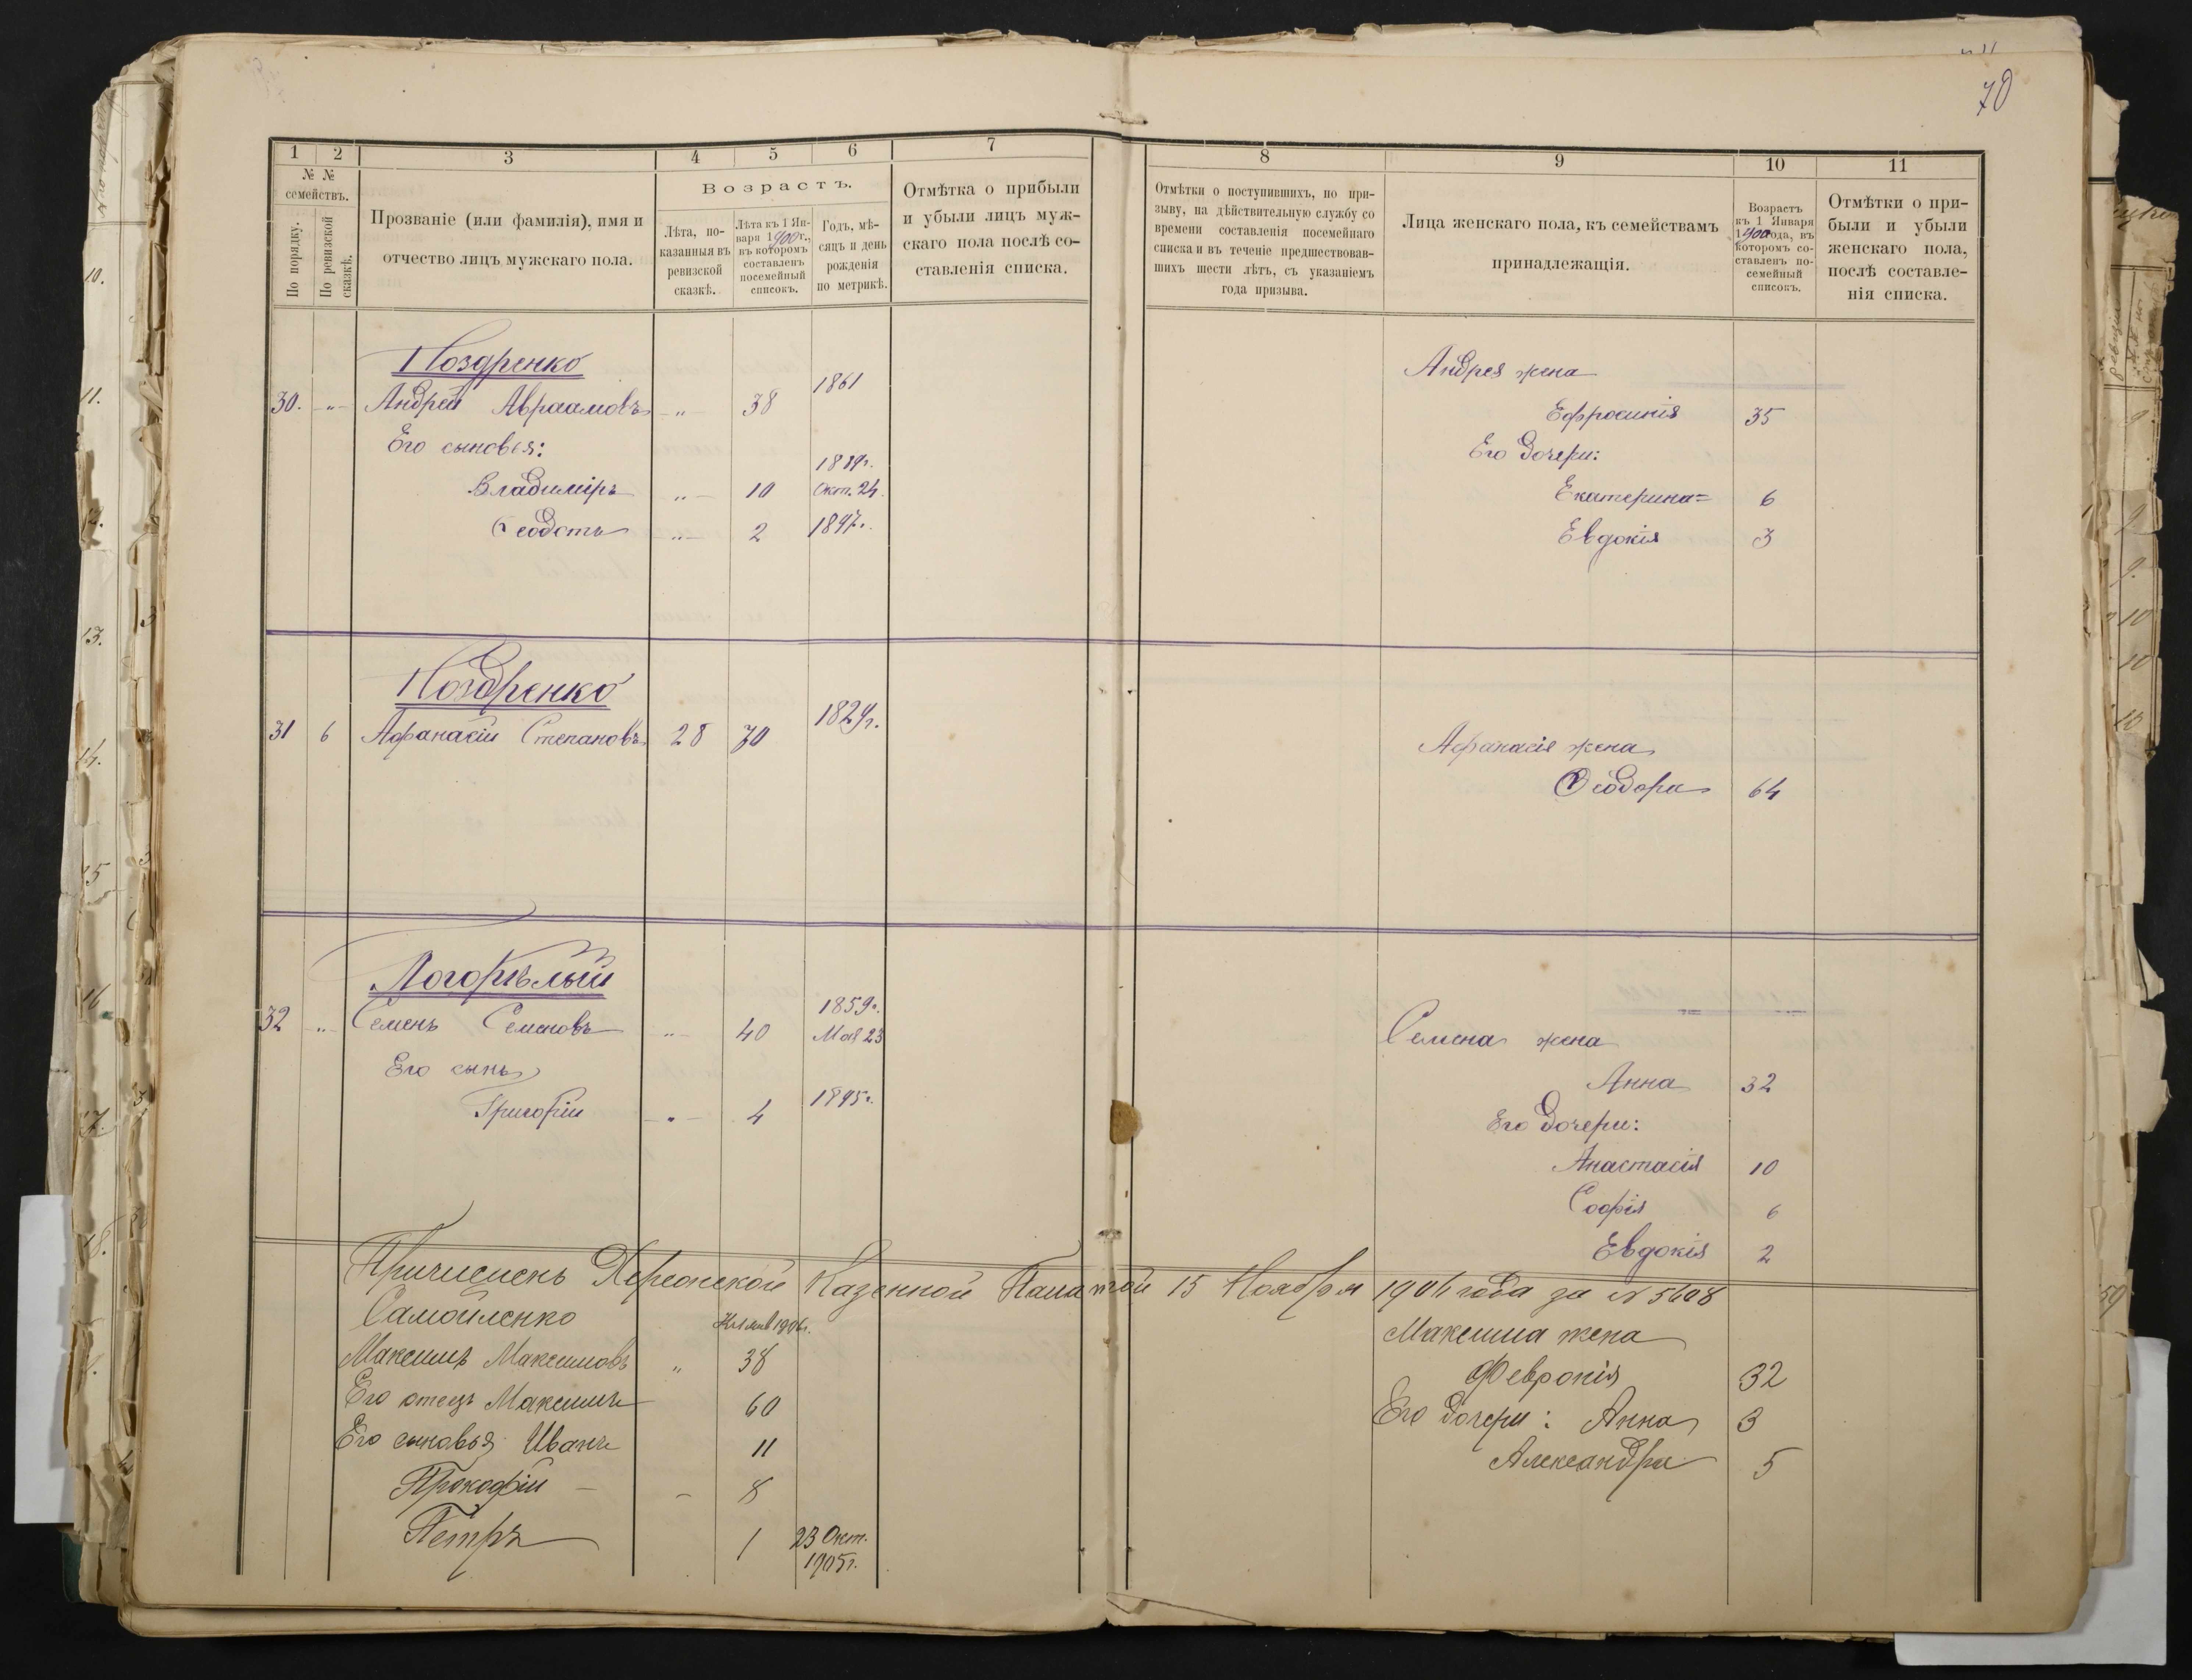 70
1 2 3 4 5 6 7
№ №
семействъ.
По порядку.
По ревизской сказкѣ.
Прозваніе (или фамилія), имя и
отчество лицъ мужскаго пола.
Возрастъ.
Лѣта, по-
казанныя въ
ревизской
сказкѣ.
Лѣта къ 1 Ян-
варя 1900 г.,
въ которомъ
составленъ
посемейный
списокъ.
Годъ, мѣ-
сяцъ и день
рожденія
по метрикѣ.
Отмѣтка о прибыли
и убыли лицъ муж-
скаго пола послѣ со-
ставленія списка.
Ноздренко
30. -„- Андрей Авраамовъ -„- 38 1861
Его сыновья:
Владиміръ „- 10 1889г. Окт. 24.
Ѳеодотъ „- 2 1897г.
Ноздренко
31 6 Афанасій Степановъ 28 70 1829г.
Погорѣлый
32 „- Семенъ Семеновъ „- 40 1859г. Мая 23
Его сынъ
Григорій „- 4 1895г.
Причисленъ Херсонской Казенной Палатой 15 Ноября 1906 года за № 5608
Самойленко
1906г.
Максимъ Максимовъ „ 38
Его отецъ Максимъ 60
Его сыновья Иванъ 11
Прокофій - - 8
Петръ 1 23 Окт.
1905г.
8 9 10 11
Отмѣтки о поступившихъ, по при-
зыву, на дѣйствительную службу со
времени составленія посемейнаго
списка и въ теченіе предшествовав-
шихъ шести лѣтъ, съ указаніемъ
года призыва.
Лица женскаго пола, къ семействамъ
принадлежащія.
Возрастъ
къ 1 Января
1900 года, въ
которомъ со-
ставленъ по-
семейный
списокъ.
Отмѣтки о при-
были и убыли
женскаго пола,
послѣ составле-
нія списка.
Андрея жена
Ефросинія 35
Его дочери:
Екатерина 6
Евдокія 3
Афанасія жена
Ѳеодора 64
Семена жена
Анна 32
Его дочери:
Анастасія 10
Софія 6
Евдокія 2
Максима жена
Февронія 32
Его дочери: Анна 3
Александра 5